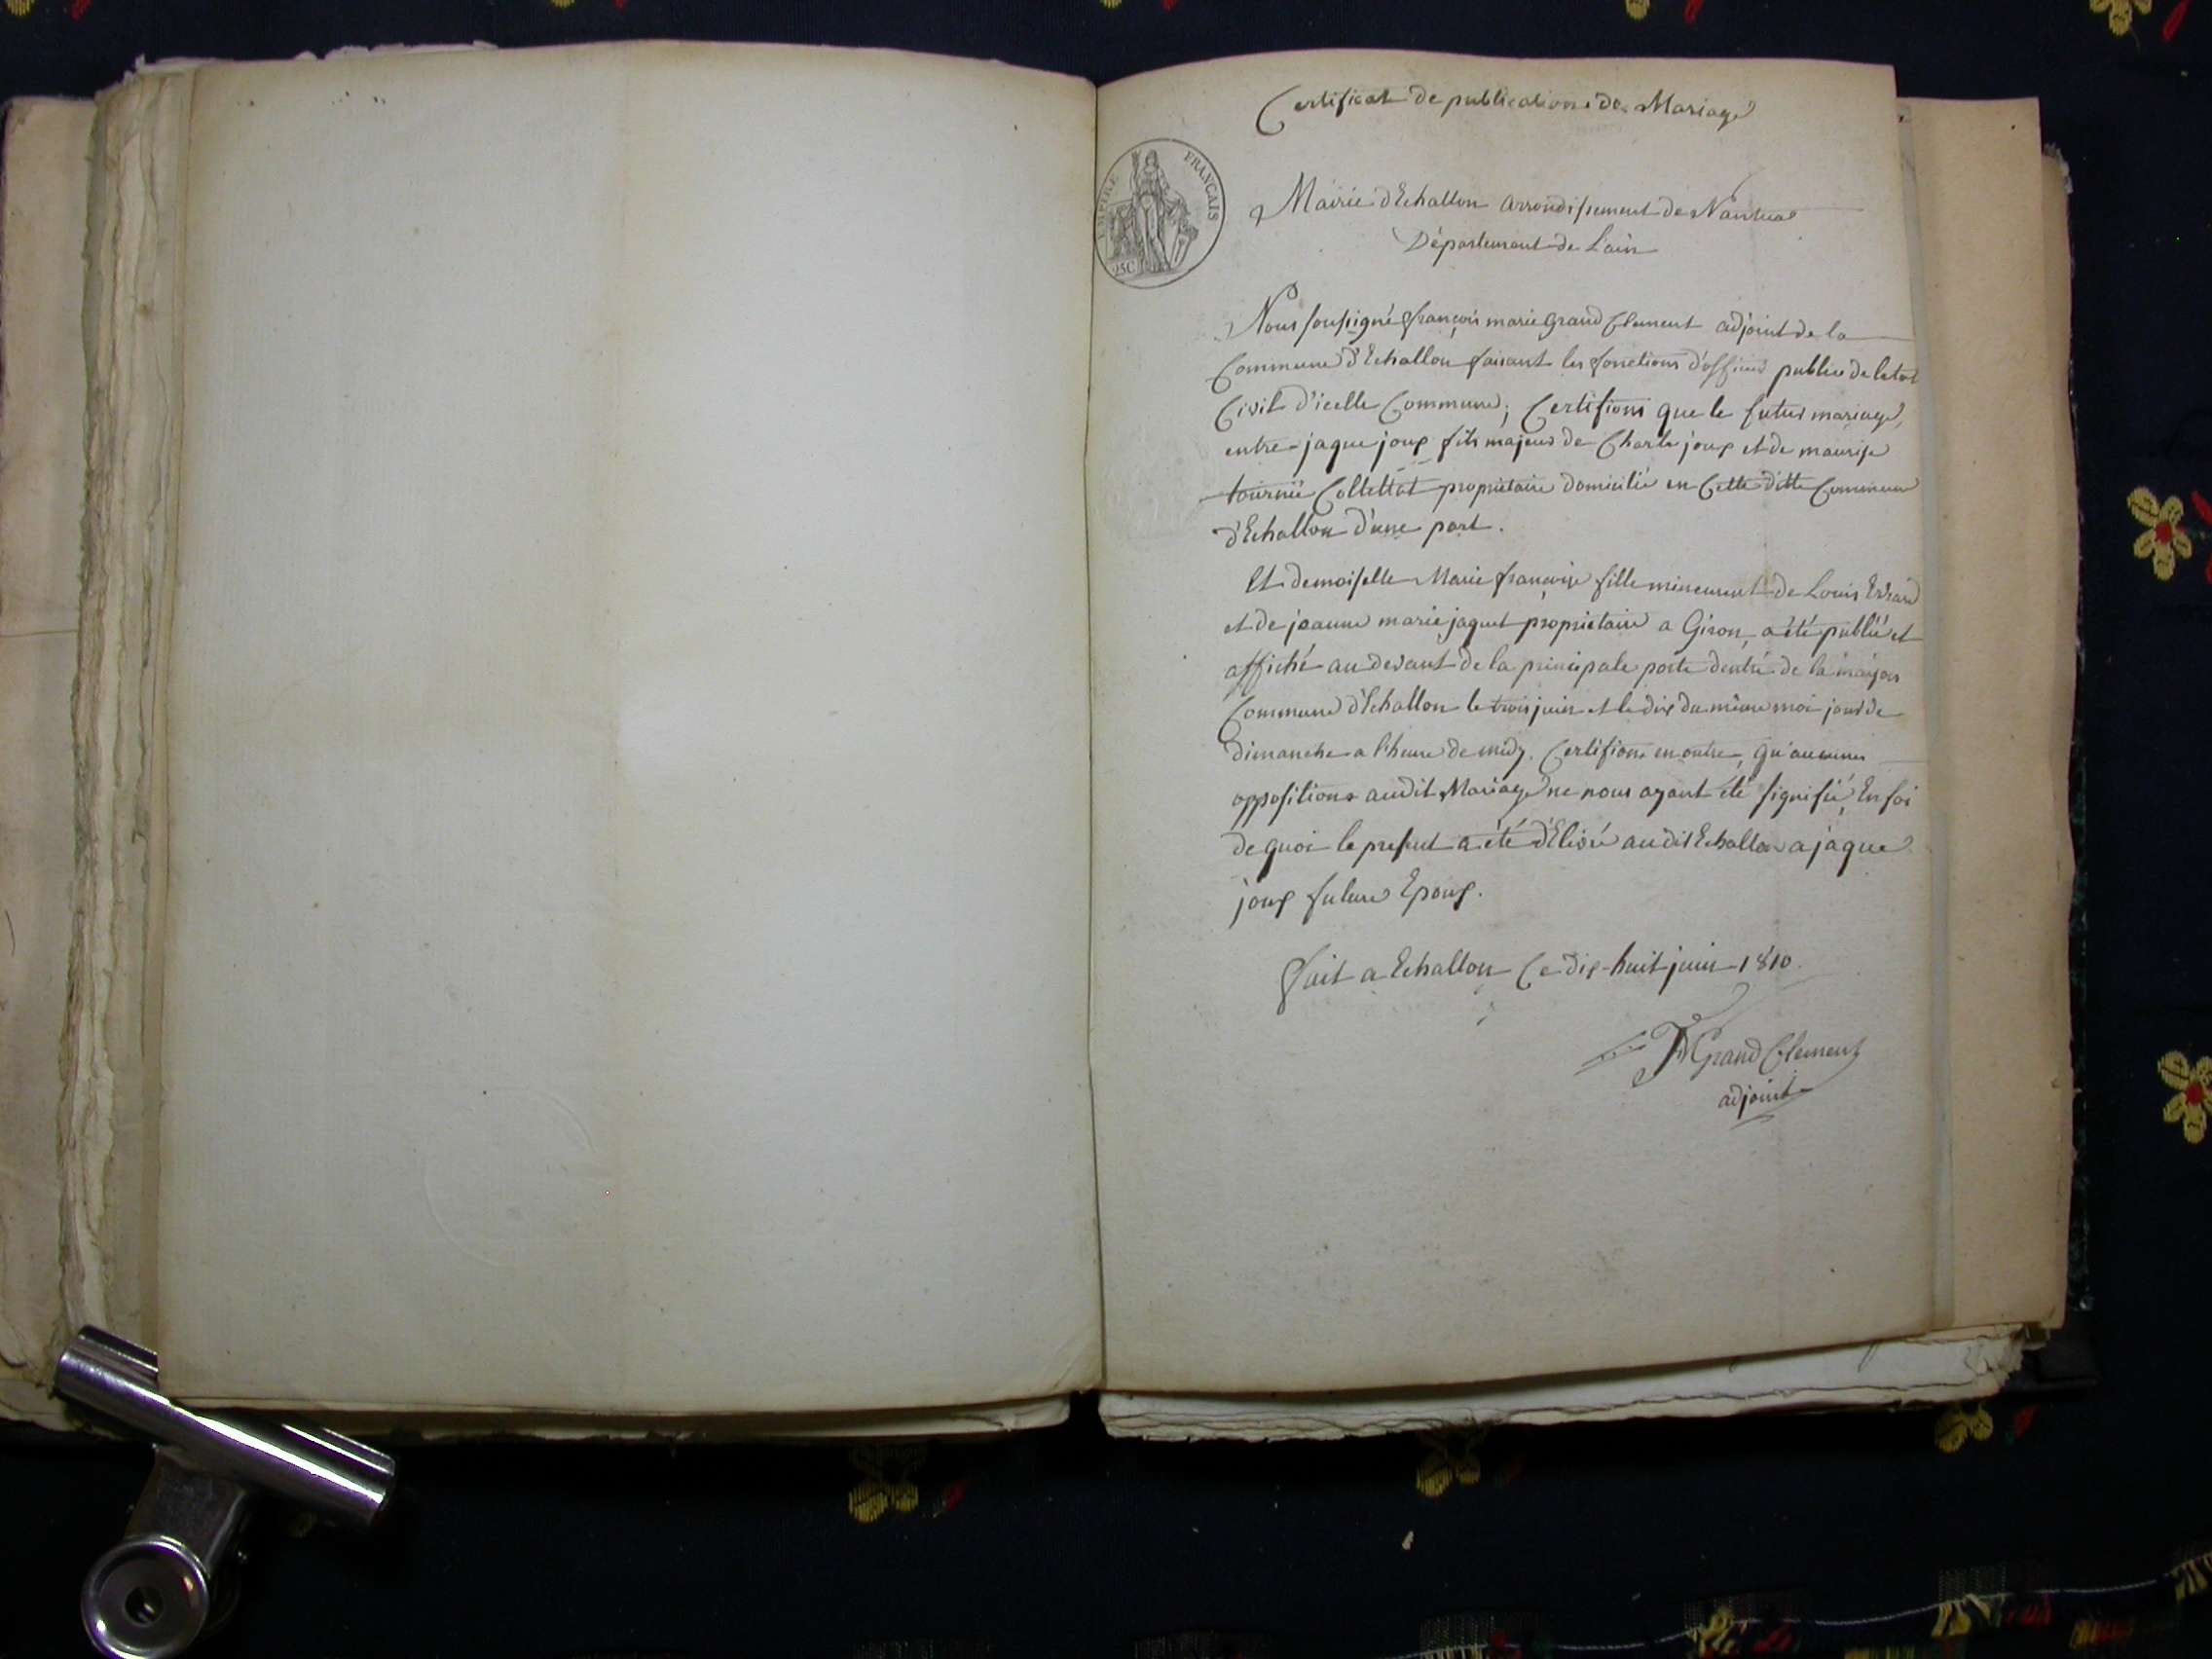 Certificat de publications de Mariage
EMPIRE FRANÇAIS
25C
Mairie d'Echallon arrondissement de Nantua
Département de L'ain
Nous soussigné françois marie Grand Clement adjoint de la
Commune d'Echallon faisant les fonctions d'officier public de letat
Civil d'icelle Commune; Certifions que le futur mariage,
entre jaque joux fils majeur de Charle joux et de maurise
tournié Collettat propriétaire domicilié en Cette ditte Commune
d'Echallon d'une part.
Et demoiselle Marie françoise fille mineure de Louis Evrard
et de jeanne marie jaquet propriétaire a Giron, a été publié et
affiché au devant de la principale porte dentré de la maison
Commune d'Echallon le trois juin et le dix du même moi jour de
dimanche a l'heure de midy. Certifions en outre, qu'aucunes
oppositions audit Mariage ne nous ayant été signifié, En foi
de quoi le present a été délivré audit Echallon a jaque
joux future Epoux.
fait a Echallon Ce dix-huit juin 1810.
FM Grand Clement
adjoint